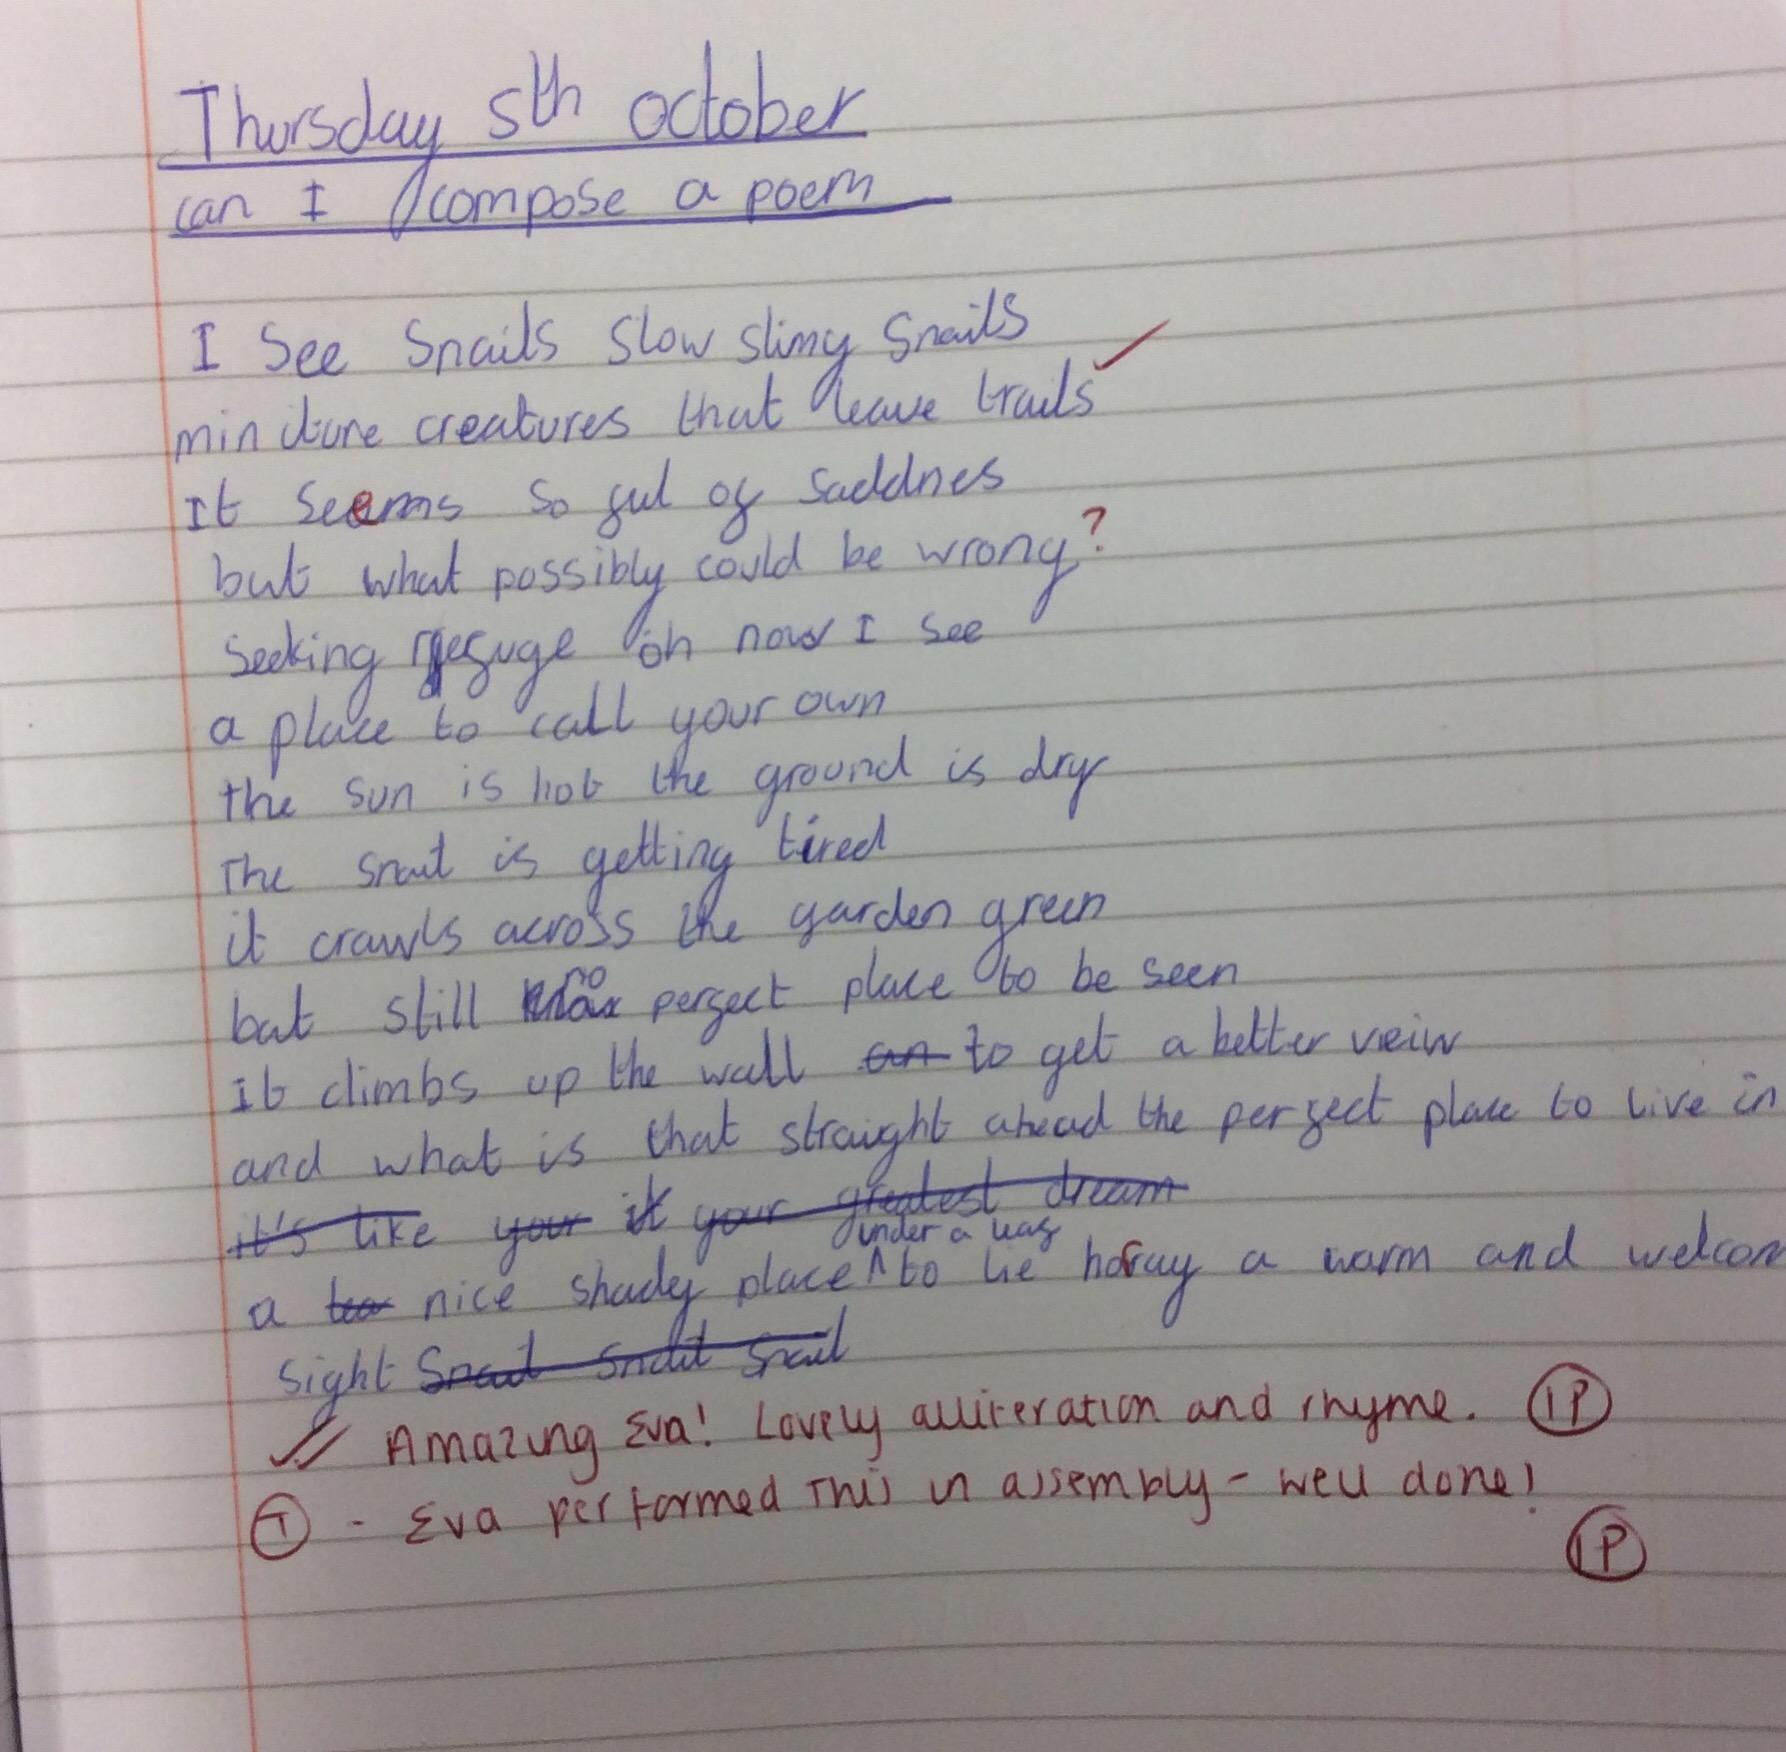 Thursday 5th october
can I compose a poem
I See Snails Slow slimy Snails
miniture creatures that leave trails
It Seems so ful of saddnes
but what possibly could be wrong?
Seeking refuge oh now I see
a place to call your own
the sun is hot the ground is dry
The snail is getting tired
it crawls across the garden green
but still no perfect place to be seen
It climbs up the wall an to get a better veiw
and what is that straight ahead the perfect place to live in
it's like your it your greatest dream
under a leaf
a nice shady place ^ to lie horay a warm and welcom
sight Snail Snail Snail
Amazing Eva! Lovely alliteration and rhyme. 1P
T - Eva performed this in assembly - well done!
1P